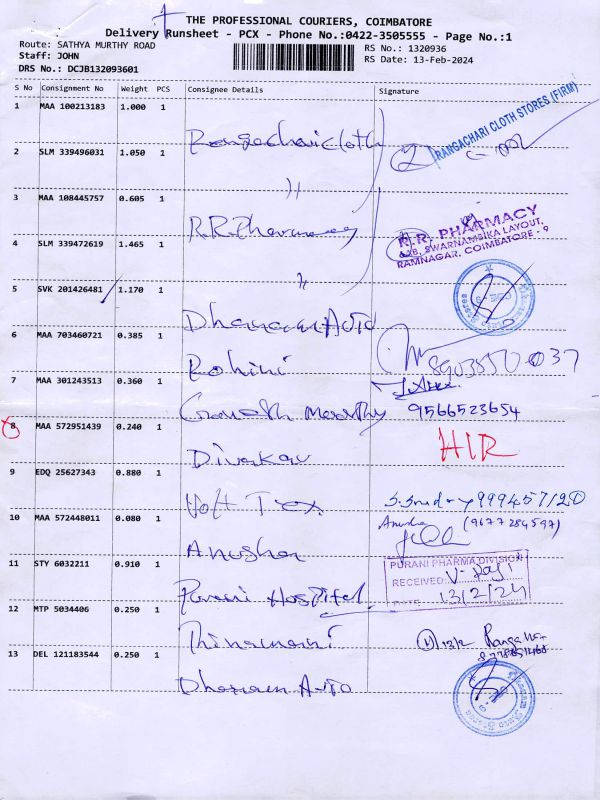 THE PROFESSIONAL COURIERS, COIMBATORE
Delivery Runsheet - PCX - Phone No.:0422-3505555 - Page No.:1
Route: SATHYA MURTHY ROAD
Staff: JOHN
DRS No.: DCJB132093601
RS No.: 1320936
RS Date: 13-Feb-2024
S No Consignment No Weight PCS Consignee Details Signature
1 MAA 100213183 1.000 1 Rangacharicloth
RANGACHARI CLOTH STORES (FIRM)
2 SLM 339496031 1.050 1 〃
3 MAA 108445757 0.605 1 R.R.Pharmacy
R.R. PHARMACY
SWARNAMBIKA LAYOUT,
RAMNAGAR, COIMBATORE - 9
4 SLM 339472619 1.465 1 〃
5 SVK 201426481 1.170 1 Dhanam Auto
6 MAA 703460721 0.385 1 Rohini
7 MAA 301243513 0.360 1 Moorthy
9566523654
8 MAA 572951439 0.240 1 Divakar HIR
9 EDQ 25627343 0.880 1 Volt Tex
10 MAA 572448011 0.080 1 Anusha
Anusha (9677284597)
11 STY 6032211 0.910 1 Purani Hospital
PURANI PHARMA DIVISION
RECEIVED: V. Raji
DATE 13/2/24
12 MTP 5034406 0.250 1 Thinamani
13/2
13 DEL 121183544 0.250 1 Dhanam Auto